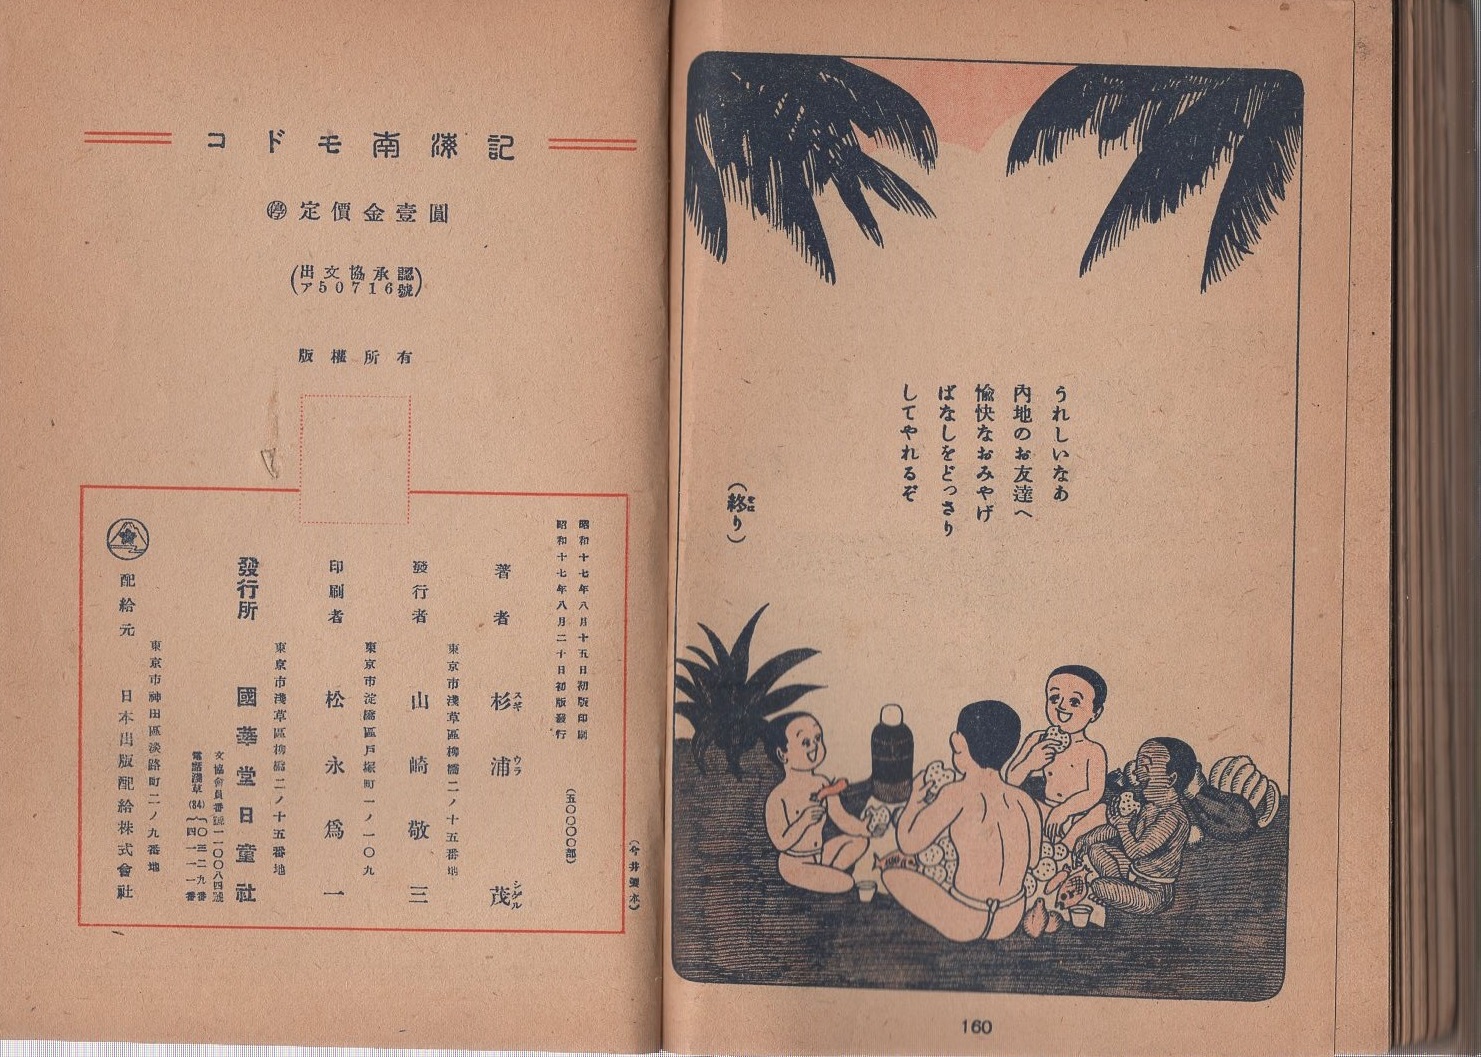 うれしいなあ
内地のお友達へ
愉快なおみやげ
ばなしをどっさり
してやれるぞ
(終り)
をは
160
コドモ南海記
㊡定價金壹圓
(出文協承認
ア50716號)
版權所有
昭和十七年八月十五日初版印刷
昭和十七年八月二十日初版發行
(五〇〇〇〇部)
著者 杉浦茂
スギ ウラ シゲル
東京市淺草區柳橋二ノ十五番地
發行者 山崎敬三
東京市淀橋區戸塚町一ノ一〇九
印刷者 松永爲一
東京市淺草區柳橋二ノ十五番地
發行所 國華堂日童社
文協會員番號一一〇〇八四號
電話淺草(84)
〇三二九番
四一一一番
東京市神田區淡路町二ノ九番地
配給元 日本出版配給株式會社
(今井製本)